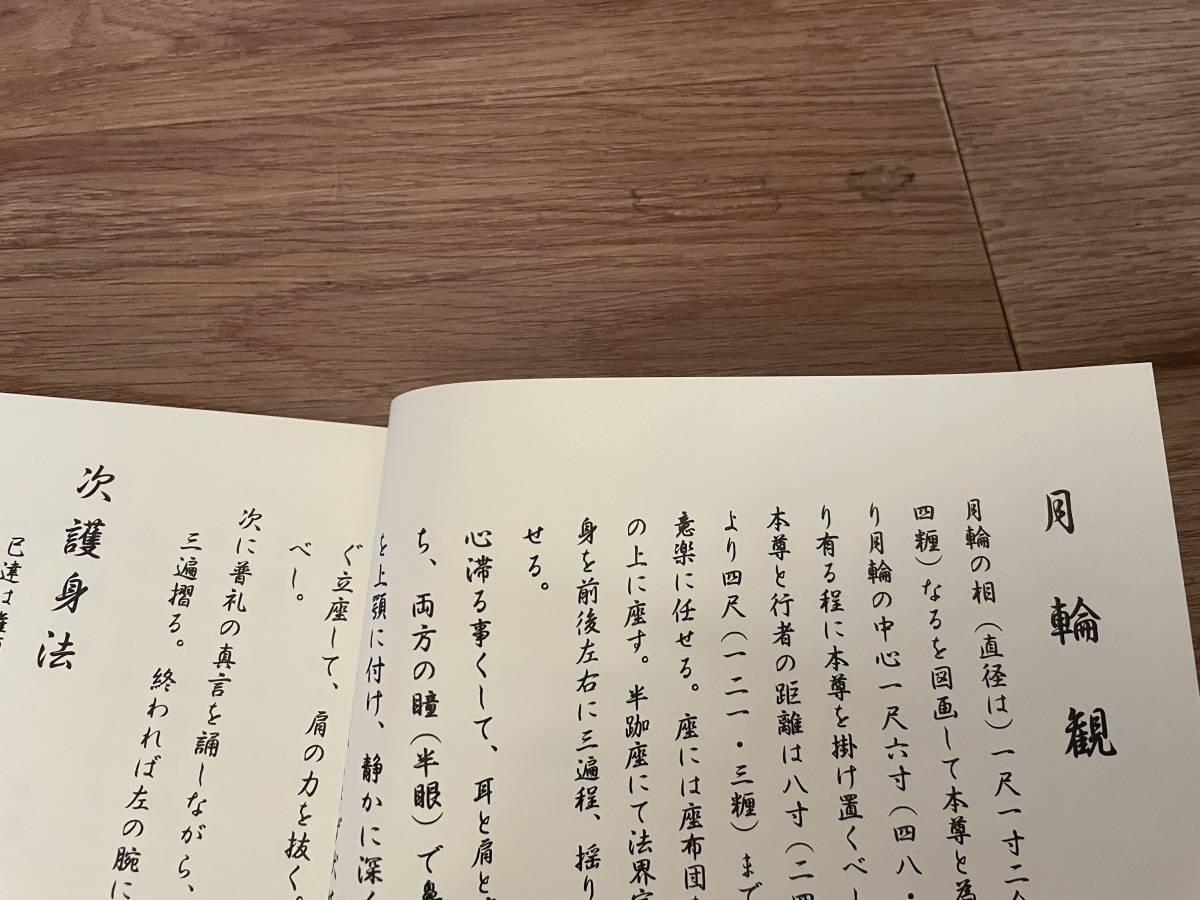 月輪観
月輪の相（直径は）一尺一寸二分
四糎）なるを図画して本尊と為
り月輪の中心一尺六寸（四八・
り有る程に本尊を掛け置くべし
本尊と行者の距離は八寸（二四
より四尺（一二一・三糎）まで
意楽に任せる。座には座布団
の上に座す。半跏座にて法界定
身を前後左右に三遍程、揺り
せる。
心滞る事くして、耳と肩と
ち、両方の瞳（半眼）で鼻
を上顎に付け、静かに深く
ぐ立座して、肩の力を抜く。
べし。
次に普礼の真言を誦しながら、
三遍摺る。終われば左の腕に
次護身法
已達は